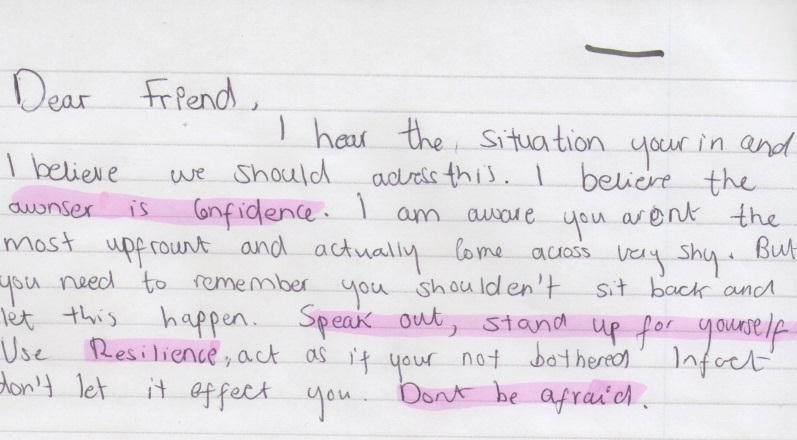 Dear Friend,
I hear the, situation your in and
I believe we should adress this. I believe the
awnser is Confidence. I am aware you arent the
most upfrount and actually Come across very shy. But
you need to remember you shoulden't sit back and
let this happen. Speak out, stand up for yourself
Use Resilience, act as if your not bothered Infact
don't let it effect you. Dont be afraid.